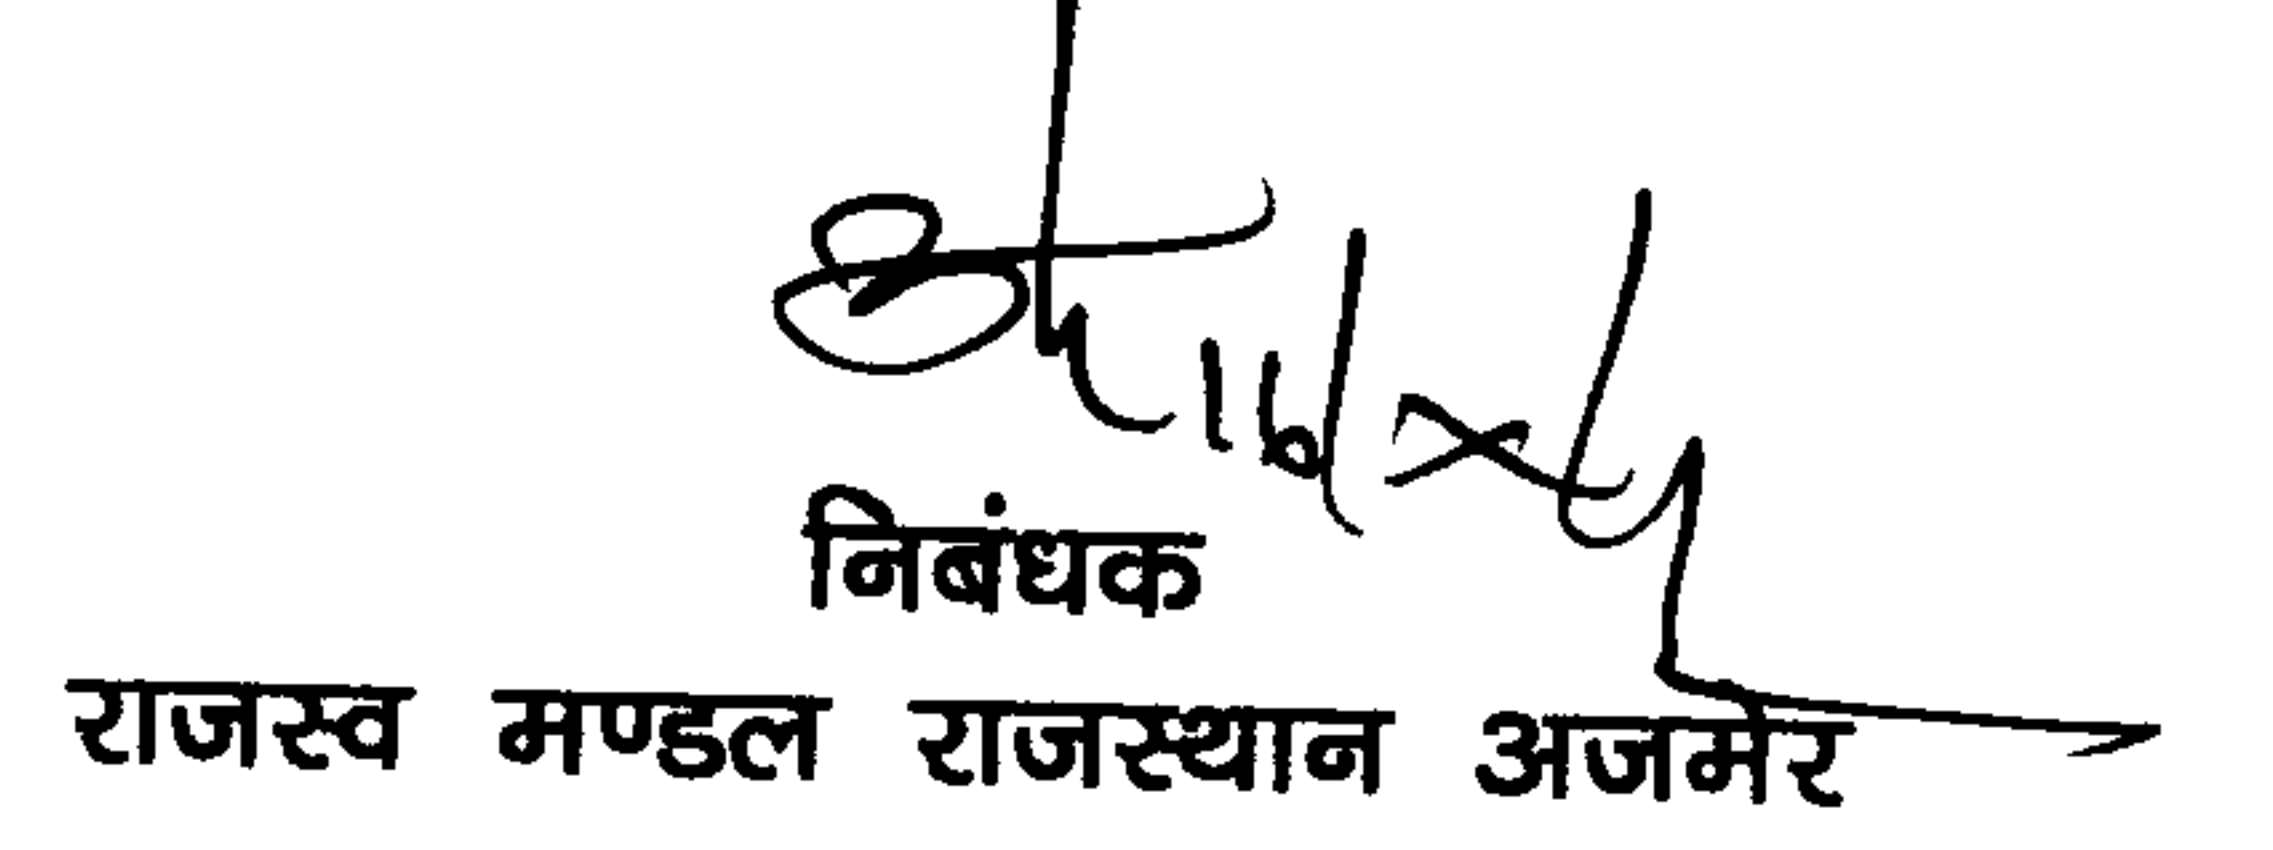 निबंधक
राजस्व मण्डल राजस्थान अजमेर